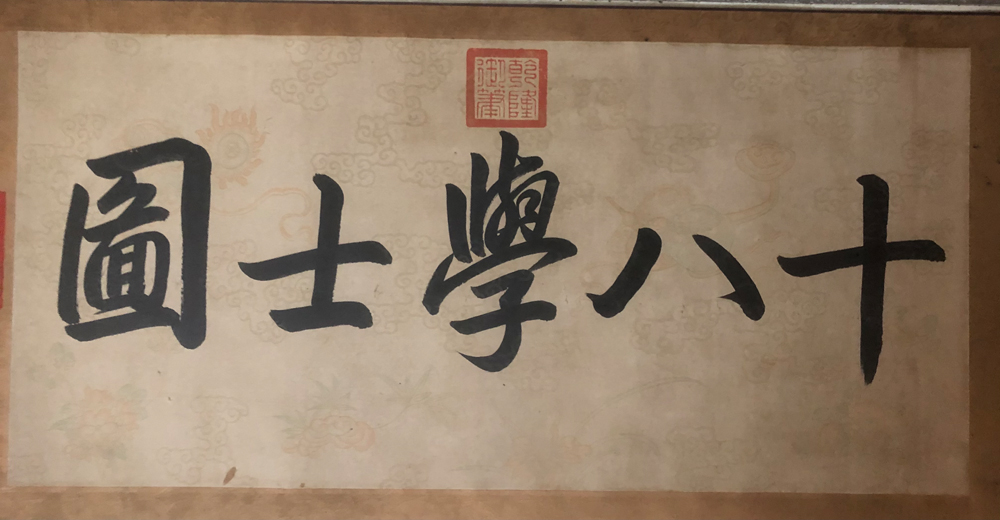 十八學士圖
乾隆御筆